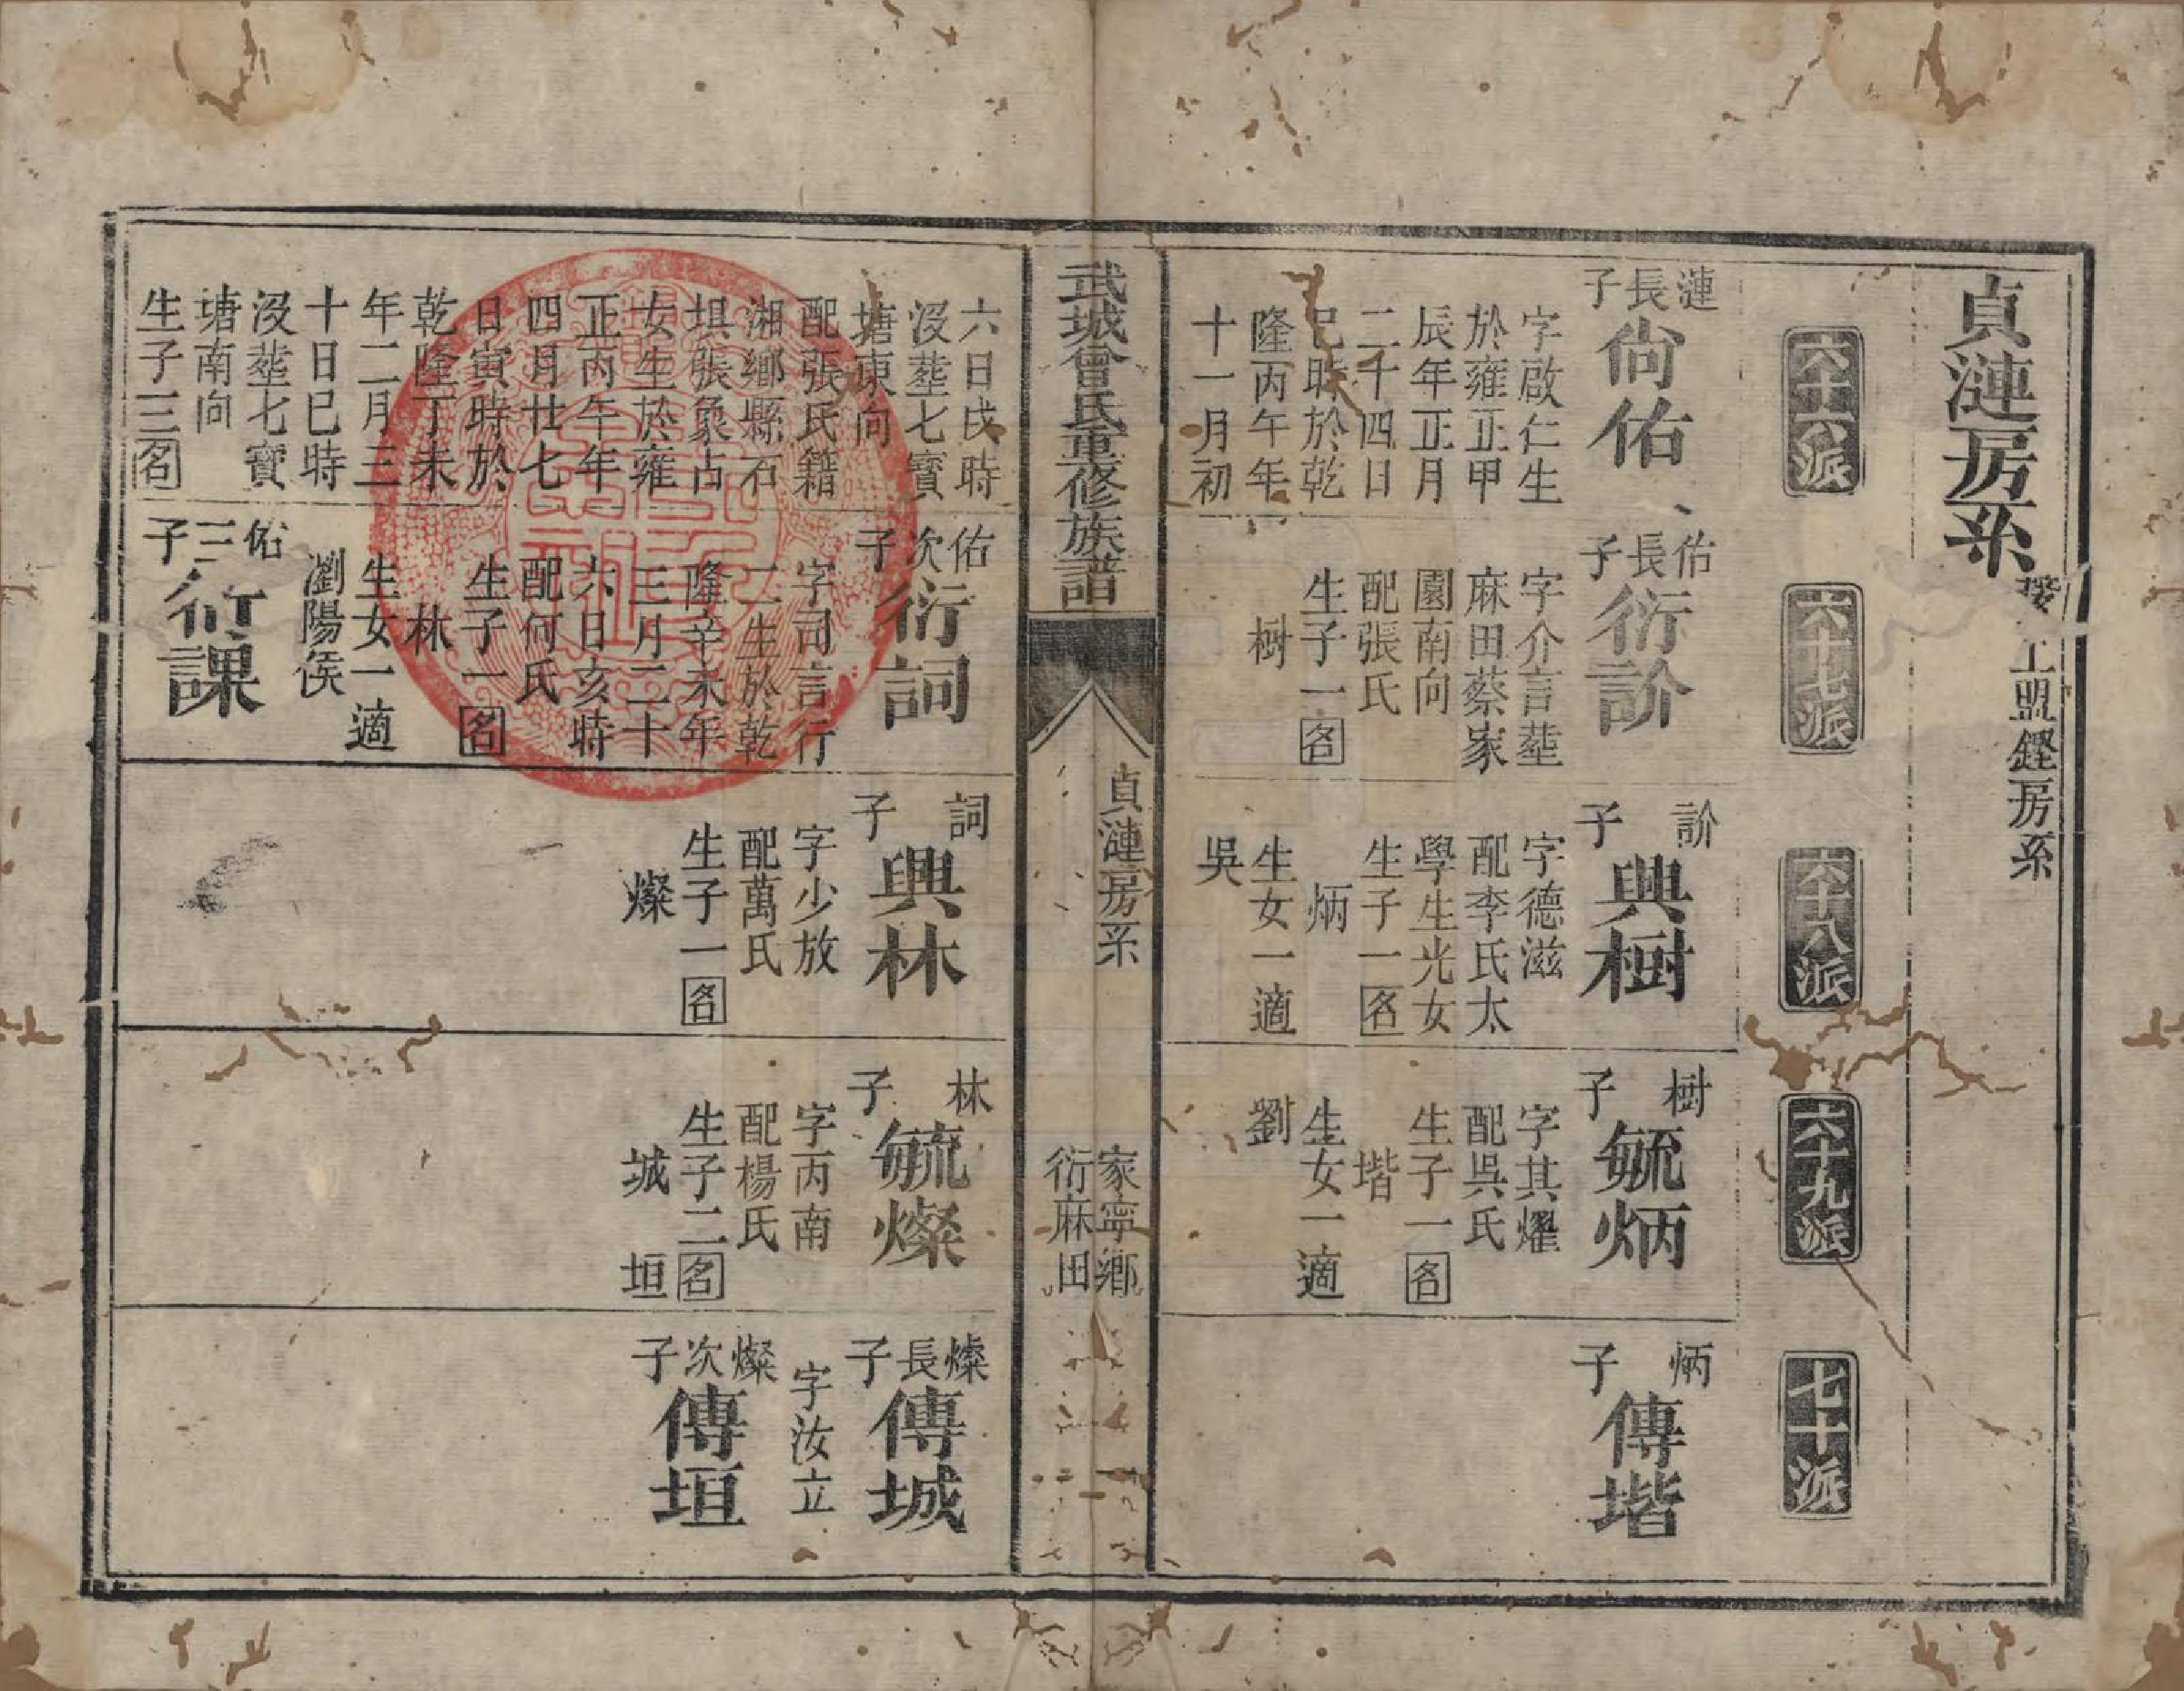 貞漣房系 接上盟鏗房系
六十六派
六十七派
六十八派
六十九派
七十派
漣長子
尙佑
字啟仁生
於雍正甲
辰年正月
二十四日
巳時於乾
隆丙午年
十一月初
佑長子
衍訡
字介言塟
麻田蔡家
園南向
配張氏
生子一名
樹
訡子
興樹
字德滋
配李氏太
學生光女
生子一名
炳
生女一適
吳
樹子
毓炳
字其燿
配吳氏
生子一名
堦
生女一適
劉
炳子
傳堦
武城曾氏重修族譜
貞漣房系
家寧鄉
衍麻田
六日戌時
沒塟七寶
塘東向
配張氏籍
湘鄉縣石
垻張㒸占
女生於雍
正丙午年
四月廿七
日寅時於
乾隆丁未
年二月三
十日巳時
沒塟七寶
塘南向
生子三名
佑次子
衍詞
字司言行
二生於乾
隆辛未年
三月二十
六日亥時
配何氏
生子一名
林
生女一適
瀏陽侯
佑三子
衍課
詞子
興林
字少放
配萬氏
生子一名
燦
林子
毓燦
字丙南
配楊氏
生子二名
城 垣
燦長子
傳城
字汝立
燦次子
傳垣